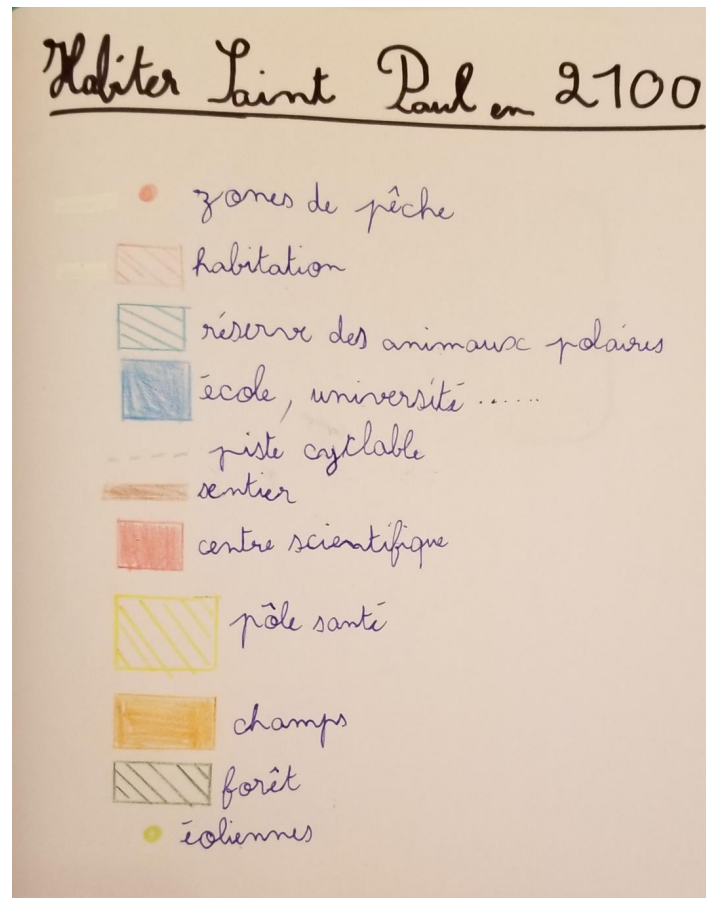 Habiter Saint Paul en 2100
zones de pêche
habitation
réserve des animaux polaires
école, université ......
piste cyclable
sentier
centre scientifique
pôle santé
champs
forêt
éoliennes